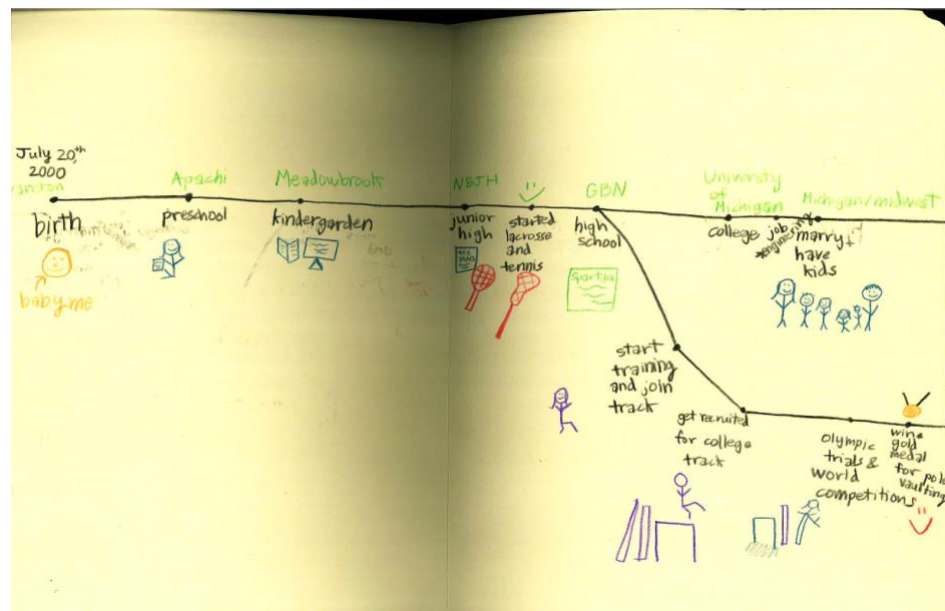 July 20,th
2000
birth
baby me
Apachi
preschool
Meadowbrook
kindergarden
NBJH
junior
high
started
lacrosse
and
tennis
GBN
high
school
Spartan
University
of
Michigan
college
job
*engineering
Michigan/midwest
marry +
have
kids
start
training
and join
track
get recruited
for college
track
olympic
trials &
world
competitions
win a
gold
medal
for pole
vaulting